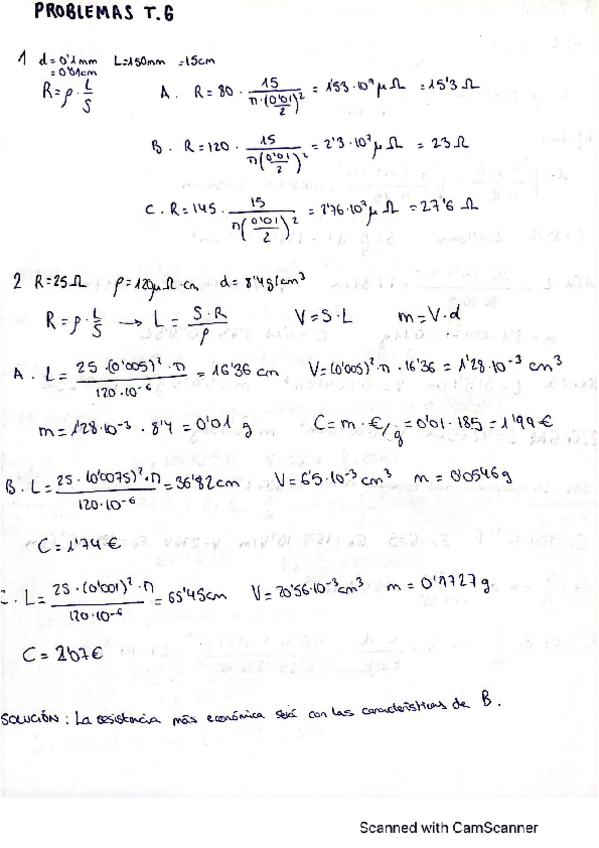 PROBLEMAS T.6
1 d=0'1mm L=150mm =15cm
=0'01cm
R=ρ·L/S A. R=80·15/π·(0'01/2)² = 1'53·10⁷μΩ = 15'3 Ω
B. R=120·15/π(0'01/2)² = 2'3·10⁷μΩ = 23 Ω
C. R=145·15/π(0'01/2)² = 2'76·10⁷μΩ = 27'6 Ω
2 R=25Ω ρ=120μΩ·cm d=8'4g/cm³
R=ρ·L/S → L=S·R/ρ V=S·L m=V·d
A. L=25·(0'005)²·π/120·10⁻⁶ = 16'36 cm V=(0'005)²π·16'36=1'28·10⁻³ cm³
m=1'28·10⁻³·8'4=0'01 g C=m·€/g=0'01·185=1'99€
B. L=25·(0'0075)²·π/120·10⁻⁶=36'82cm V=6'5·10⁻³cm³ m=0'0546g
C=1'74€
C. L=25·(0'001)²·π/120·10⁻⁶=65'45cm V=20'56·10⁻³cm³ m=0'1727g.
C=2'07€
SOLUCIÓN: La resistencia más económica será con las características de B.
Scanned with CamScanner